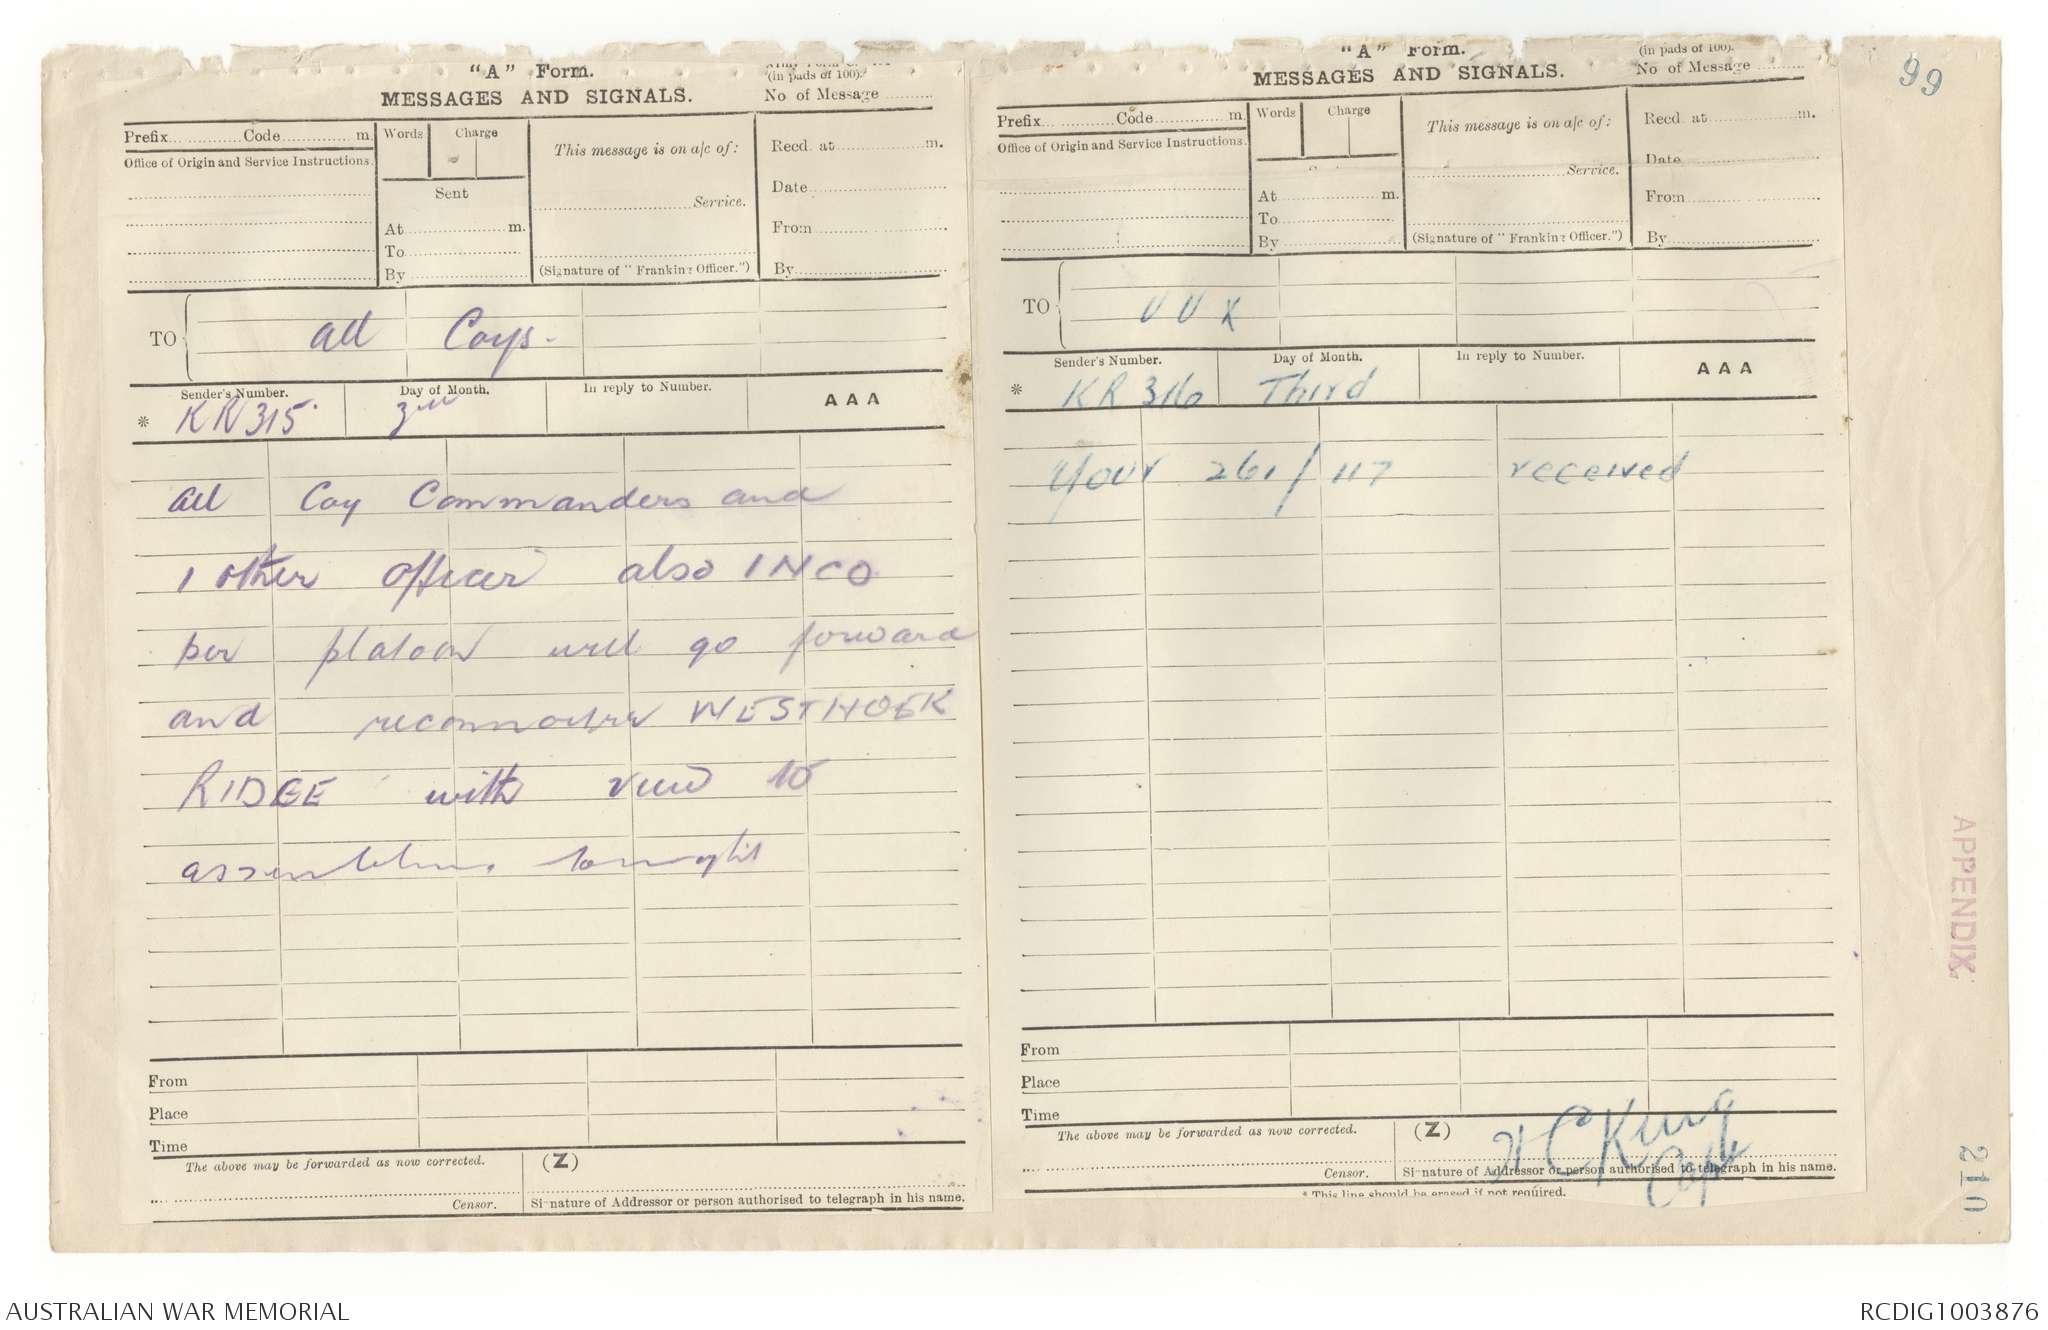 "A" Form.
MESSAGES AND SIGNALS.
(in pads of 100).
No of Message
Prefix Code m.
Words Charge
This message is on a/c of:
Recd. at m.
Office of Origin and Service Instructions.
Sent
Date
Service.
At m.
From
To
By
(Signature of "Franking Officer.")
By
TO
All Coys.
Sender's Number.
Day of Month.
In reply to Number.
AAA
* KR 315. 3rd
All Coy Commanders and
1 other officer also 1 NCO
per platoon will go forward
and reconnoitre WESTHOEK
RIDGE with view to
assembling tonight
From
Place
Time
The above may be forwarded as now corrected.
(Z)
Censor.
Signature of Addressor or person authorised to telegraph in his name.
"A" Form.
MESSAGES AND SIGNALS.
(in pads of 100).
No of Message
99
Prefix Code m.
Words Charge
This message is on a/c of:
Recd. at m.
Office of Origin and Service Instructions.
Date
Service.
At m.
From
To
By
(Signature of "Franking Officer.")
By
TO
UUX
Sender's Number.
Day of Month.
In reply to Number.
AAA
* KR 316 Third
Your 261/117 received
From
Place
Time
The above may be forwarded as now corrected.
(Z)
C King
Capt
Censor.
Signature of Addressor or person authorised to telegraph in his name.
* This line should be erased if not required.
APPENDIX
210
AUSTRALIAN WAR MEMORIAL
RCDIG1003876